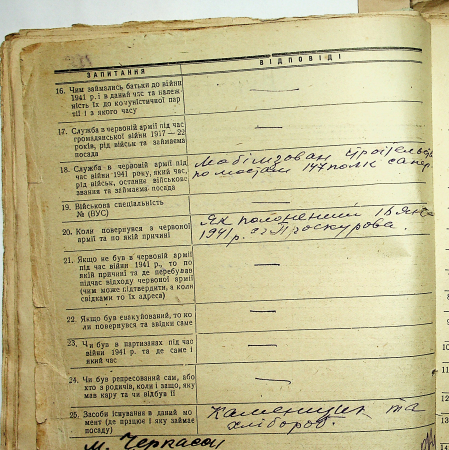 ЗАПИТАННЯ
ВІДПОВІДІ
16. Чим займались батьки до війни
1941 р. і в даний час та належ-
ність їх до комуністичної пар
тії і з якого часу
17. Служба в червоній армії під час
громадянської війни 1917 — 22
років, рід військ та займаєма
посада
18. Служба в червоній армії під
час війни 1941 року, який час,
рід військ, останнє військове
звання та займаєма посада
Мобілизован
по мостам 147 полк сапер.
19. Військова спеціальність
№ (ВУС)
20. Коли повернувся в червоної
армії та по якій причині
Як полонений 16
1941 р. з Проскурова
21. Якщо не був в червоній армії
під час війни 1941 р., то по
якій причині та де перебував
підчас відходу червоної армії
(чим може підтвердити, а коли
свідками то їх адреса)
22. Якщо був евакуйований, то ко
ли повернувся та звідки саме
23. Чи був в партизанах під час
війни 1941 р. та де саме і
який час
24. Чи був репресований сам, або
хто з родичів, коли і защо, яку
мав кару та чи відбув її
25. Засоби існування в даний мо
мент (де працює і яку займає
посаду)
Каменщик та
хлібороб.
м. Черкаси